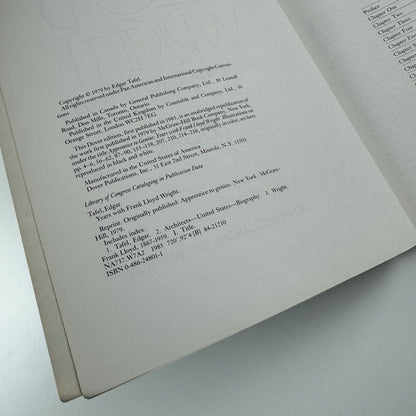 Copyright © 1979 by Edgar Tafel.
All rights reserved under Pan American and International Copyright Conventions.
Published in Canada by General Publishing Company, Ltd., 30 Lesmill
Road, Don Mills, Toronto, Ontario.
Published in the United Kingdom by Constable and Company, Ltd., 10
Orange Street, London WC2H 7EG.
This Dover edition, first published in 1985, is an unabridged republication of
the work first published in 1979 by McGraw-Hill Book Company, New York,
under the title Apprentice to Genius: Years with Frank Lloyd Wright. Illustrations on
reproduced in black and white.
Manufactured in the United States of America
Dover Publications, Inc., 31 East 2nd Street, Mineola, N.Y. 11501
Library of Congress Cataloging in Publication Data
Tafel, Edgar.
Years with Frank Lloyd Wright.
Reprint. Originally published: Apprentice to genius. New York : McGraw-
Hill, 1979.
Includes index.
1. Tafel, Edgar. 2. Architects—United States—Biography. I. Wright,
Frank Lloyd, 1867-1959. I. Title.
NA737.W7A2 1985 720'.92'4 [B] 84-21210
ISBN 0-486-24801-1
Preface
Chapter One
Chapter Two
Chapter Three
Chapter Four
Chapter Five